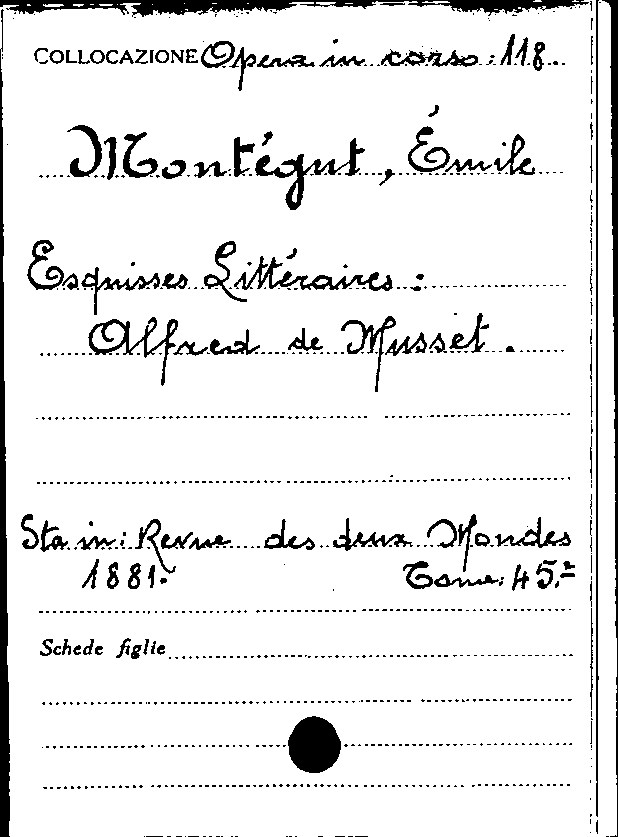 COLLOCAZIONE Opera in corso: 118.
Montégut, Émile
Esquisses Littéraires :
Alfred de Musset.
Sta in: Revue des deux Mondes
1881. Tome: 45.
Schede figlie